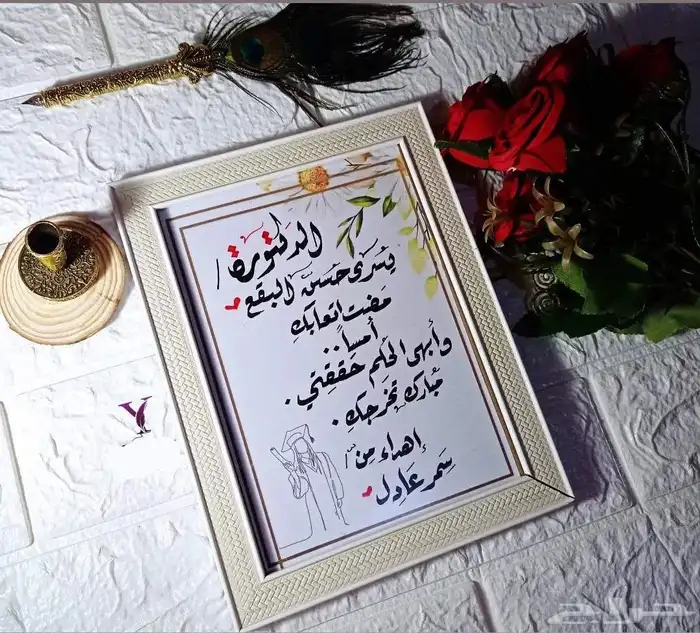 الدكتورة/
يسرى حسن البقع
مضت اتعابكِ
أمساً..
وأبهى الحلم حققتي.
مُبارك تخرجكِ.
إهداء مِن/
سمر عادل
Y
حراج